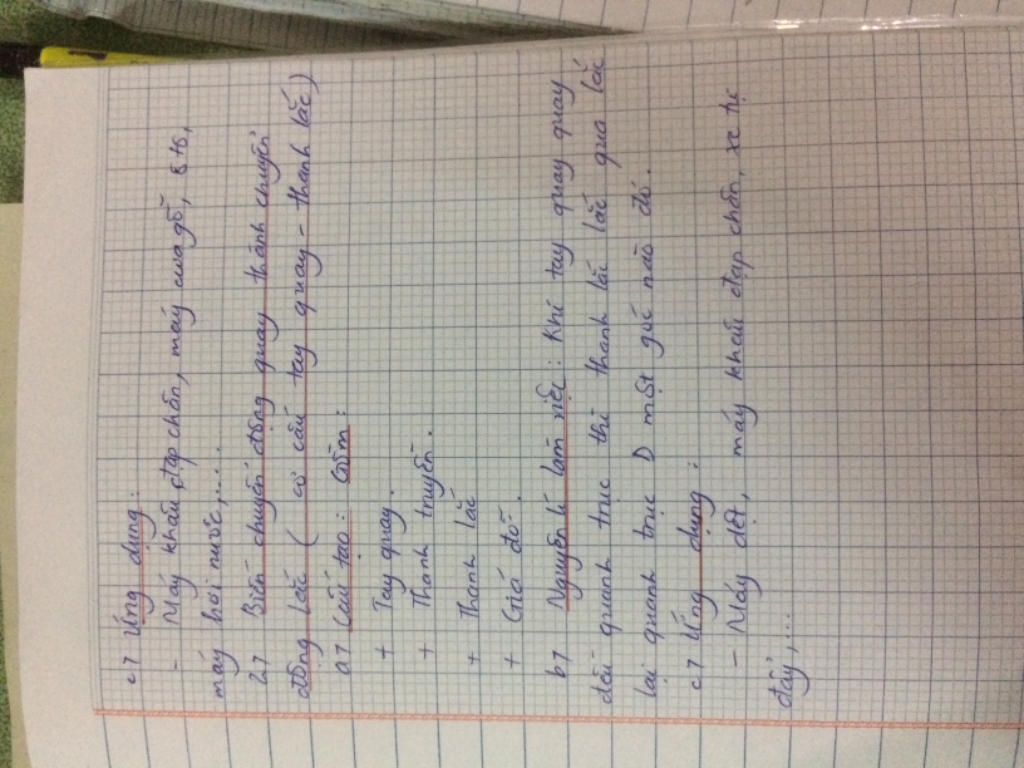 c) Ứng dụng:
- Máy khâu đạp chân, máy cưa gỗ, ô tô,
máy hơi nước,....
2) Biến chuyển động quay thành chuyển
động lắc ( cơ cấu tay quay - thanh lắc)
a) Cấu tạo: Gồm:
+ Tay quay.
+ Thanh truyền.
+ Thanh lắc
+ Giá đỡ.
b) Nguyên lí làm việc: Khi tay quay quay
đều quanh trục thì thanh lắc lắc qua lắc
lại quanh trục D một góc nào đó.
c) Ứng dụng:
- Máy dệt, máy khâu đạp chân, xe tự
đẩy,...